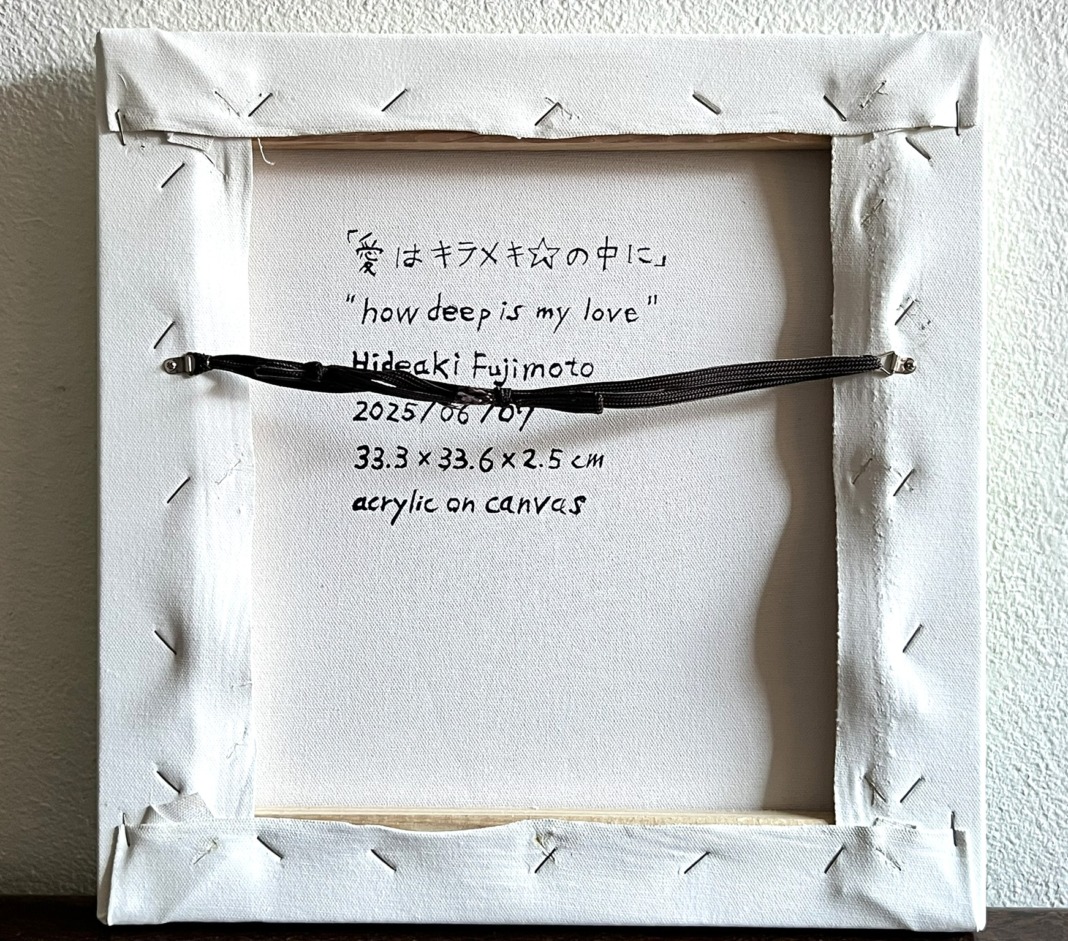 「愛はキラメキ☆の中に」
"how deep is my love"
Hideaki Fujimoto
2025/06/07
33.3×33.6×2.5cm
acrylic on canvas